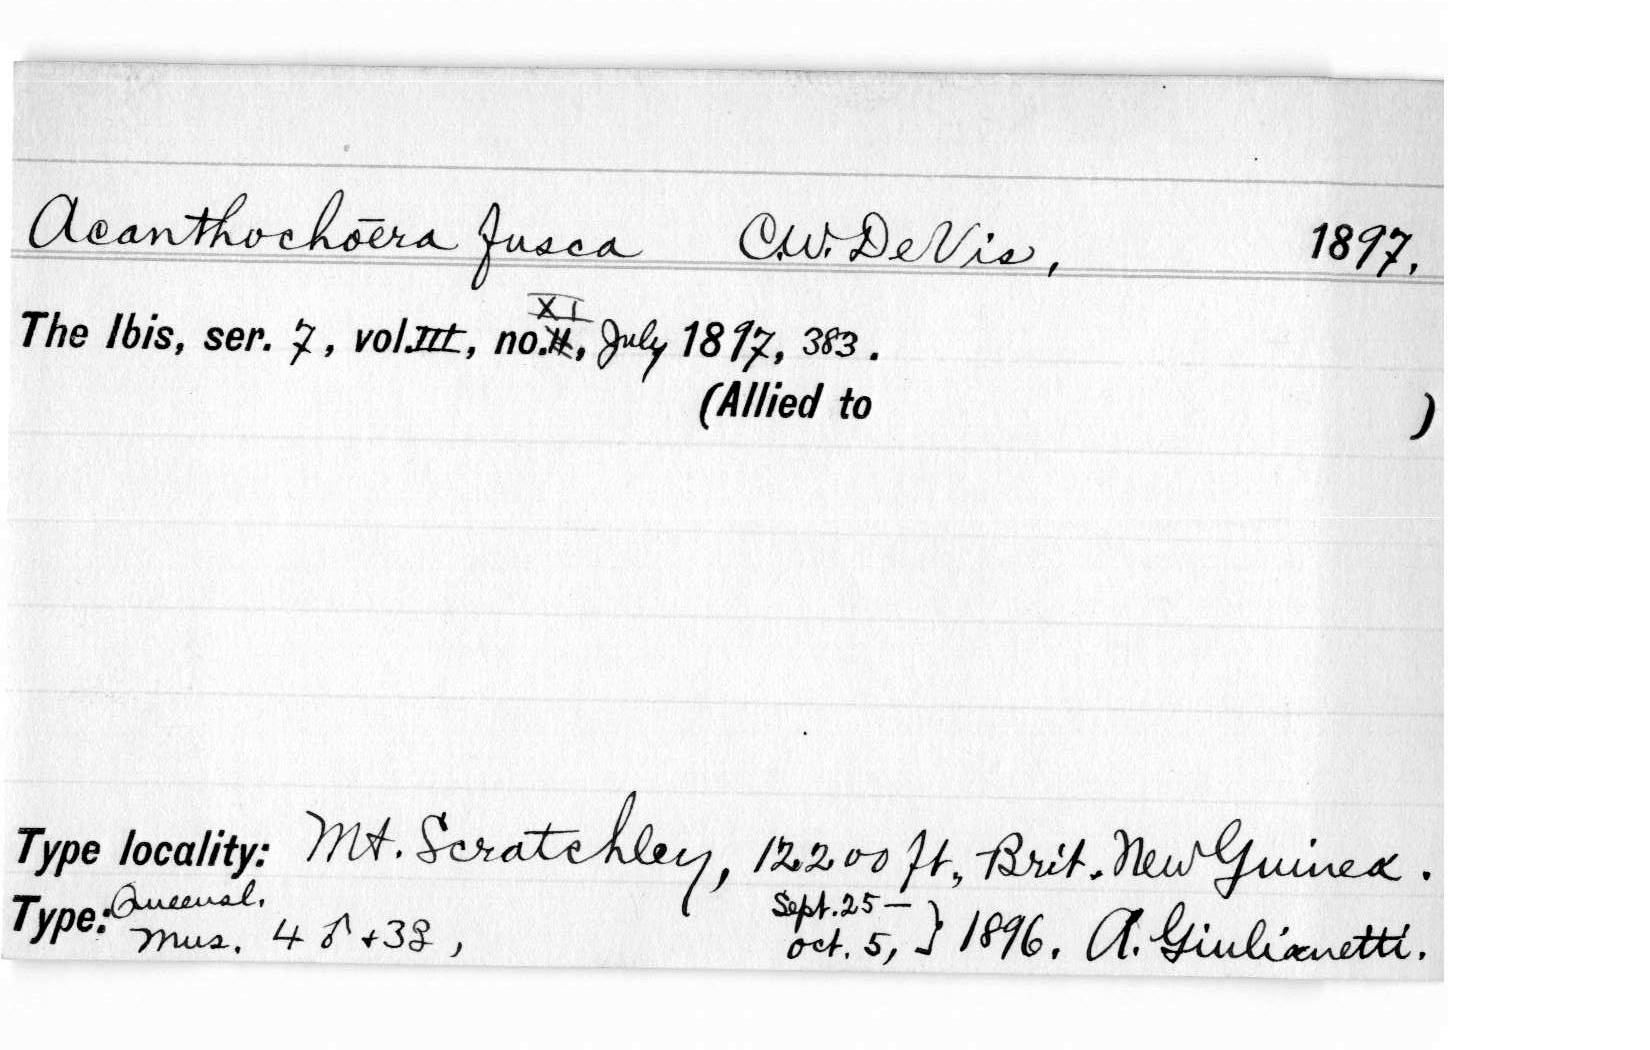 Acanthochōera fusca C.W. De Vis, 1897.
XI
The Ibis, ser. 7, vol. III, no. , July 1897, 383.
(Allied to )
Type locality: Mt. Scratchley, 12200 ft., Brit. New Guinea.
Type: Queensl. Mus. 4 ♂ + 3 ♀, Sept. 25 — Oct. 5, } 1896. A. Giulianetti.